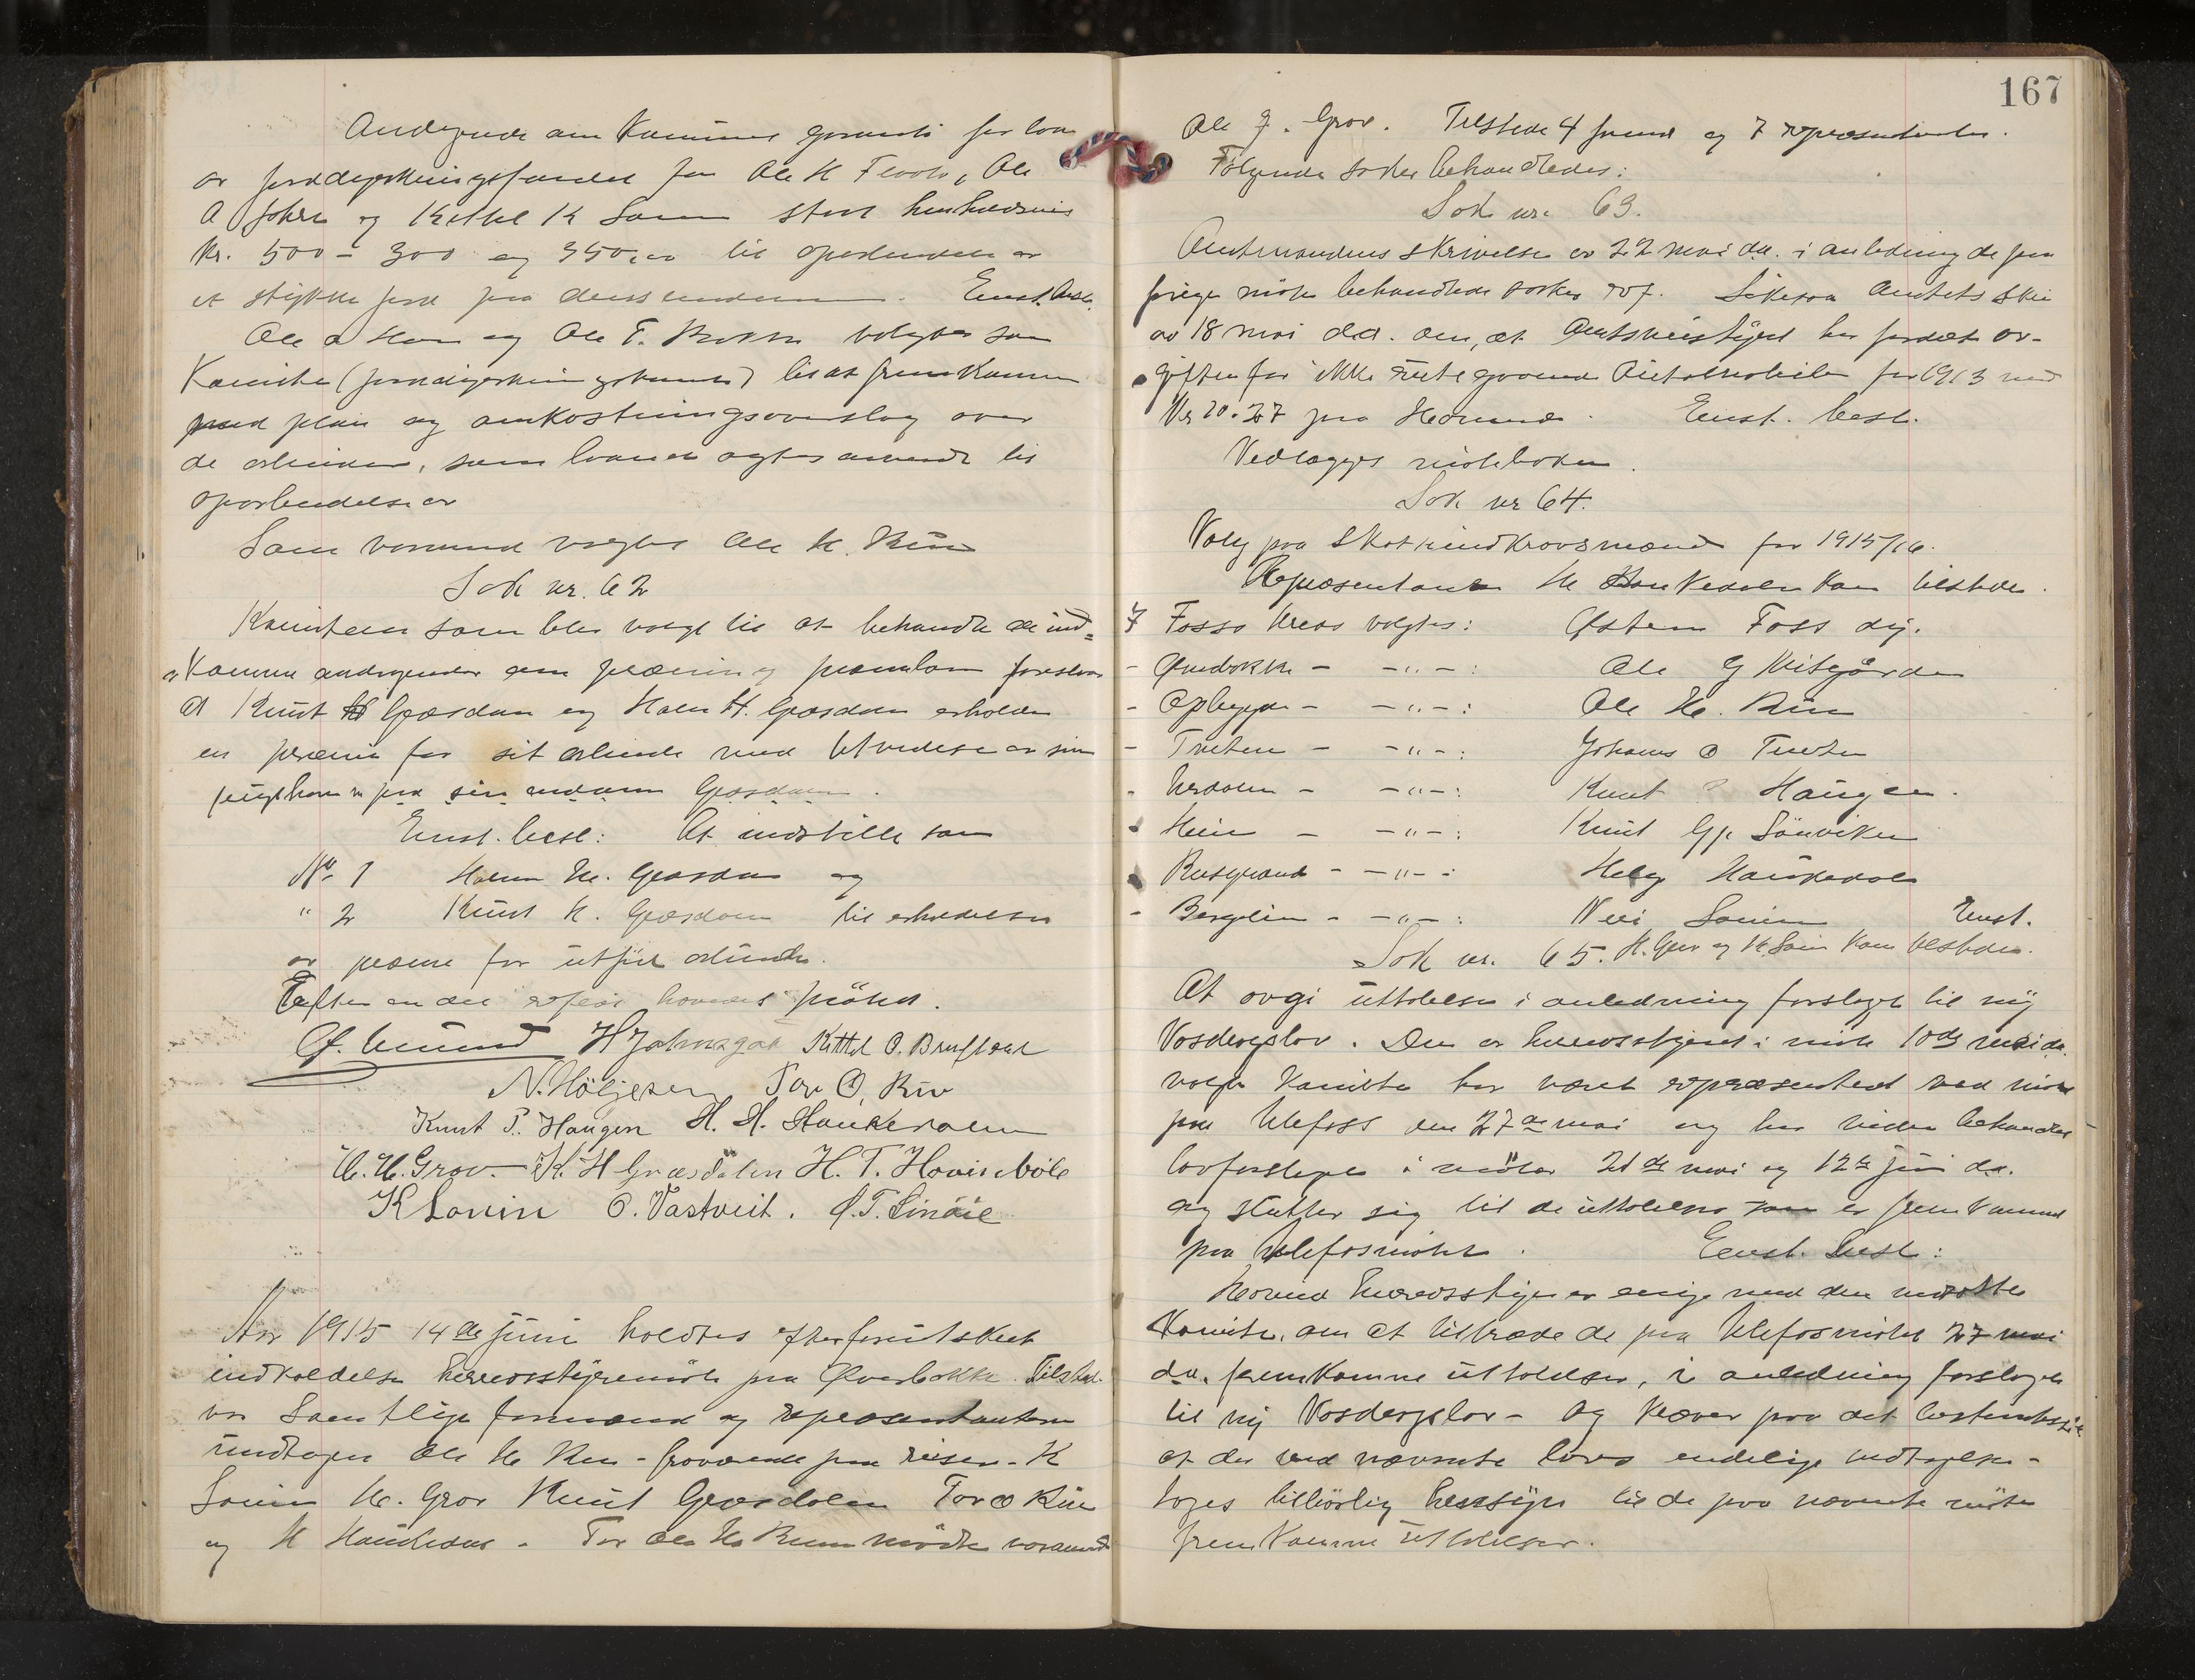 Andragende om Kommunes garanti for laan
av jorddyrkningsfondet fra Ole H Flaata, Ole
A Jokas og Kittil K Sauin stort henholdsvis
Kr. 500 - 300 og 350,00 til oparbeidelse av
et stykke jord paa deres eiendommer. Enst. besl.
Ole O Hom og Ole T. Bakke valgtes som
Komite (jorddyrkningskomite) til at fremkomme
med plan og omkostningsoverslag over
de arbeider, som laanet agtes anvendt til
oparbeidelse av
Som varmand valgtes Ole H. Rui
Sak nr. 62
Komiteen som blev valgt til at behandle de ind=
komne andragender om præmie foreslaar
at Knut H Græsdalen og Halvor H. Græsdalen erholder
en præmie for sit arbeide med utvidelse av sin
paa sin eiendom Græsdalen.
Enst. besl: At indstille som
No 1 Halvor H. Græsdalen og
" 2 Knut H. Græsdalen til erholdelse
av præmie for utført arbeide.
Efter en del hævedes mötet.
Kittil O. Brufladt
N. Höljesen Tor O. Rui
Knut P. Haugen H. H. Haukedalen
H. H. Grov K. H Græsdalen H. T.
K Lonin O. Vastveit. O. T. Lindöe
Aar 1915 14de juni holdtes efter forutskeet
indkaldelse herredsstyremöte paa Överbökka. Tilstede
var Samtlige formænd og repræsentanterne
undtagen Ole H Rui - fraværende paa reiser - K
Lonin H. Grov Knut Græsdalen Tor O Rui
og H Haukedal. For Ole H. Ruin mödte varamand
167
Ole G. Grov. Tilstede 4 formænd og 7 repræsentanter.
Følgende saker behandledes:
Sak nr. 63.
Amtmandens skrivelse av 22 mai d.a. i anledning de paa
forrige möte behandlede saker Likesaa Amtets skr.
av 18 mai d.a. om, at Amtsveistyret har fordelt av-
giften for ikke rutegaaende Automobiler for 1913 med
Kr 20.27 paa Hovind. Enst. besl.
Vedlægges møteboken.
Sak nr 64.
Valg paa Skatteindkrævsmænd for 1915/16.
Repræsentant H Haukedalen kom tilstede.
I Fosso kreds valgtes: Østen Foss dy.
- Överbökka - -"- : Ole G
- Opbygde - -"- : Ole H. Rui
- Træten - -"- : Johans O Træten
- - -"- : Knut P Haugen.
- - -"- : Knut Gj. Sönviken
- Busgrænd - -"- : Helge Haukedal
- Bergelien - -"- : Nils Enst.
Sak nr. 65. H. Grov og K. Lonin kom tilstede.
At avgi uttalelse i anledning forslaget til ny
Vasdragslov. Den av herredsstyret i möte 10de mai d.a.
valgte Komite har været repræsenteret ved möte
paa Ulefoss den 27de mai og har siden behandlet
lovforslaget i möter 21de mai og 12te juni d.a.
og slutter sig til de uttalelser som er fremkommet
paa Ulefosmötet. Enst. Besl:
Hovind herredsstyre er enige med den nedsatte
Komite, om at tiltræde de paa Ulefosmötet 27 mai
d.a. fremkomne uttalelser, i anledning forslaget
til ny Vasdragslov - og kræver paa det bestemteste
at der ved nævnte lovs endelige vedtagelse -
tages tilbörlig hensyn til de paa nævnte möte
fremkomne uttalelser.